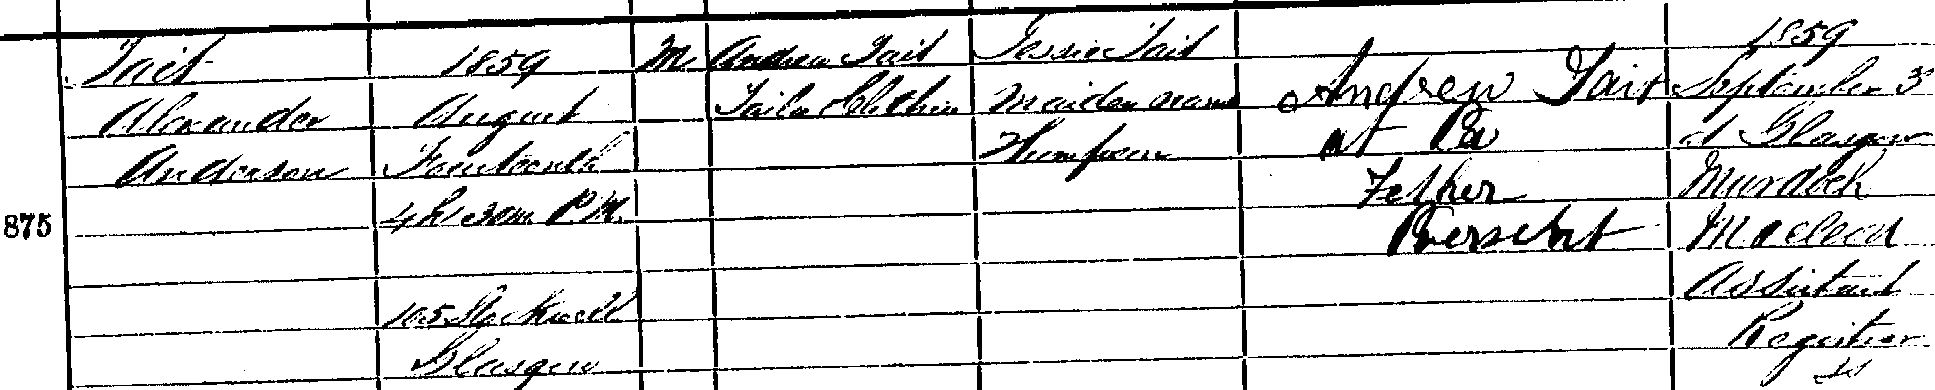 875
Tait
Alexander
Anderson
1859
August
Fourteenth
4h 30m P.M.
105 Stockwell
Glasgow
M.
Andrew Tait
Tailor Clothier
Jessie Tait
Maiden name
Thompson
Andrew Tait
Father
1859
September 3d
at Glasgow
Murdoch
Macleod
Assistant
Registrar